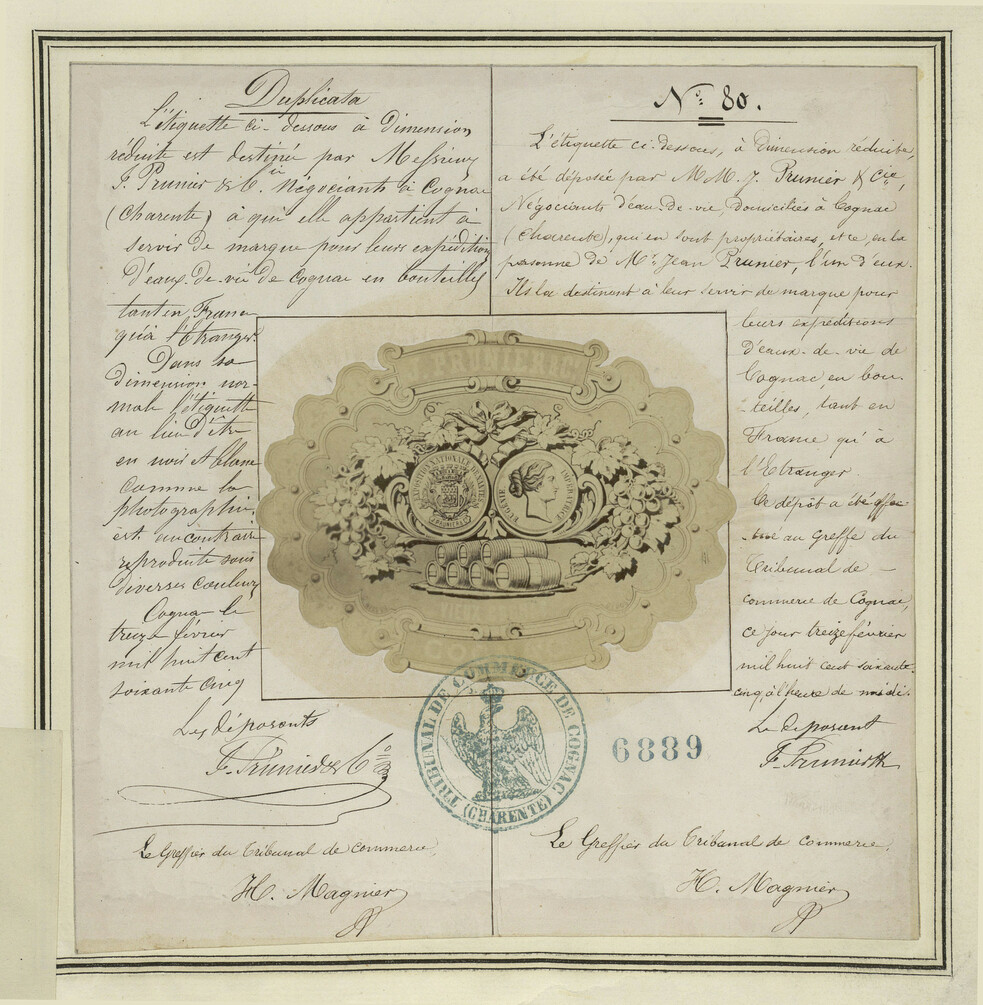 Duplicata
L'étiquette ci-dessous à dimension
réduite est destinée par Messieurs
J. Prunier & Cie Négociants à Cognac
(Charente) à qui elle appartient à
servir de marque pour leurs expéditions
d'eaux-de-vie de Cognac en bouteilles
tant en France
qu'à l'Etranger.
Dans sa
dimension nor-
male l'étiquette
au lieu d'être
en noir et blanc
comme la
photographie
est au contraire
reproduite sous
diverses couleurs
Cognac le
treize février
mil huit cent
soixante cinq
Les déposants
J. Prunier & Co
Le Greffier du Tribunal de commerce,
H. Magnier
No: 80.
L'étiquette ci-dessous, à dimension réduite,
a été déposée par MM. J. Prunier & Cie,
Négociants d'eau-de-vie, domiciliés à Cognac
(Charente), qui en sont propriétaires, et ce, en la
personne de Mr. Jean Prunier, l'un d'eux.
Ils la destinent à leur servir de marque pour
leurs expéditions
d'eaux-de-vie de
Cognac en bou-
-teilles, tant en
France qu'à
l'Etranger
Ce dépôt a été effec
-tué au Greffe du
Tribunal de -
commerce de Cognac,
ce jour treize février
mil huit cent soixante
cinq, à l'heure de midi.
Le déposant
J. Prunier
Le Greffier du Tribunal de commerce,
H. Magnier
J. PRUNIER & Co
EXPOSITION NATIONALE DE NANTES
J. PRUNIER & Co
EUGENIE IMPERATRICE
TRIBUNAL DE COMMERCE DE COGNAC
(CHARENTE)
6889